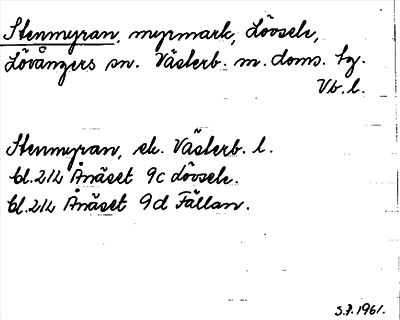 Stenmyran, myrmark, Lövsele,
Lövångers sn. Västerb. m. doms. tg.
Vb. l.
Stenmyran, ek. Västerb. l.
bl. 214 Ånäset 9c Lövsele.
bl. 214 Ånäset 9d Fällan.
S.F. 1961.